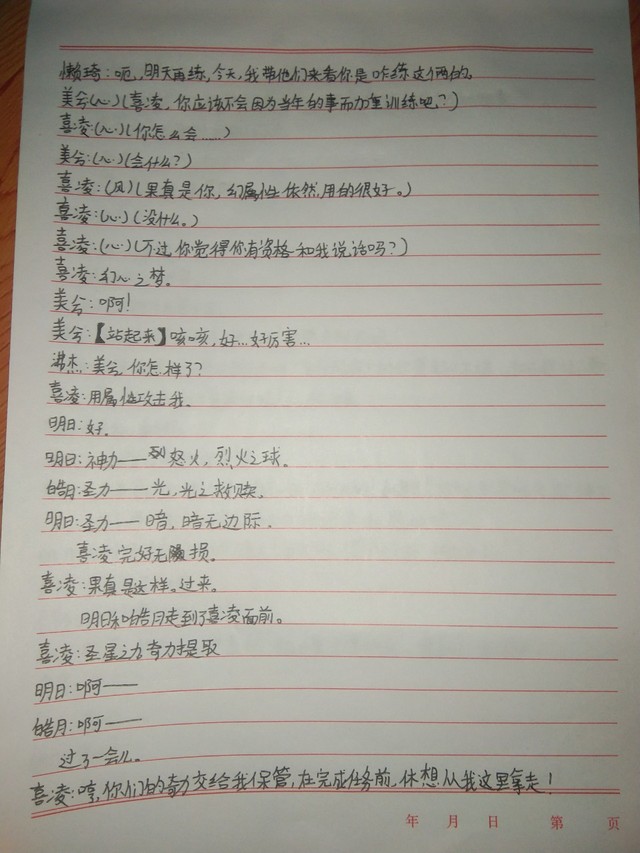 懒琦：呃，明天再练，今天，我带他们来看你是咋练这俩的。
美兮：(心)(喜凌，你应该不会因为当年的事而加重训练吧？)
喜凌：(心)(你怎么会……)
美兮：(心)(会什么？)
喜凌：(风)(果真是你，幻属性依然用的很好。)
喜凌：(心)(没什么。)
喜凌：(心)(不过，你觉得你有资格和我说话吗？)
喜凌：幻心之梦。
美兮：啊！
美兮：【站起来】咳咳，好…好厉害…
沸杰：美兮，你怎样了？
喜凌：用属性攻击我。
明日：好。
明日：神力——烈怒火，烈火之球。
皓月：圣力——光，光之救赎。
明日：圣力——暗，暗无边际。
喜凌完好无损。
喜凌：果真是这样。过来。
明日和皓月走到了喜凌面前。
喜凌：圣星之力奇力提取
明日：啊——
皓月：啊——
过了一会儿。
喜凌：哼，你们的奇力交给我保管，在完成任务前，休想从我这里拿走！
年 月 日 第 页